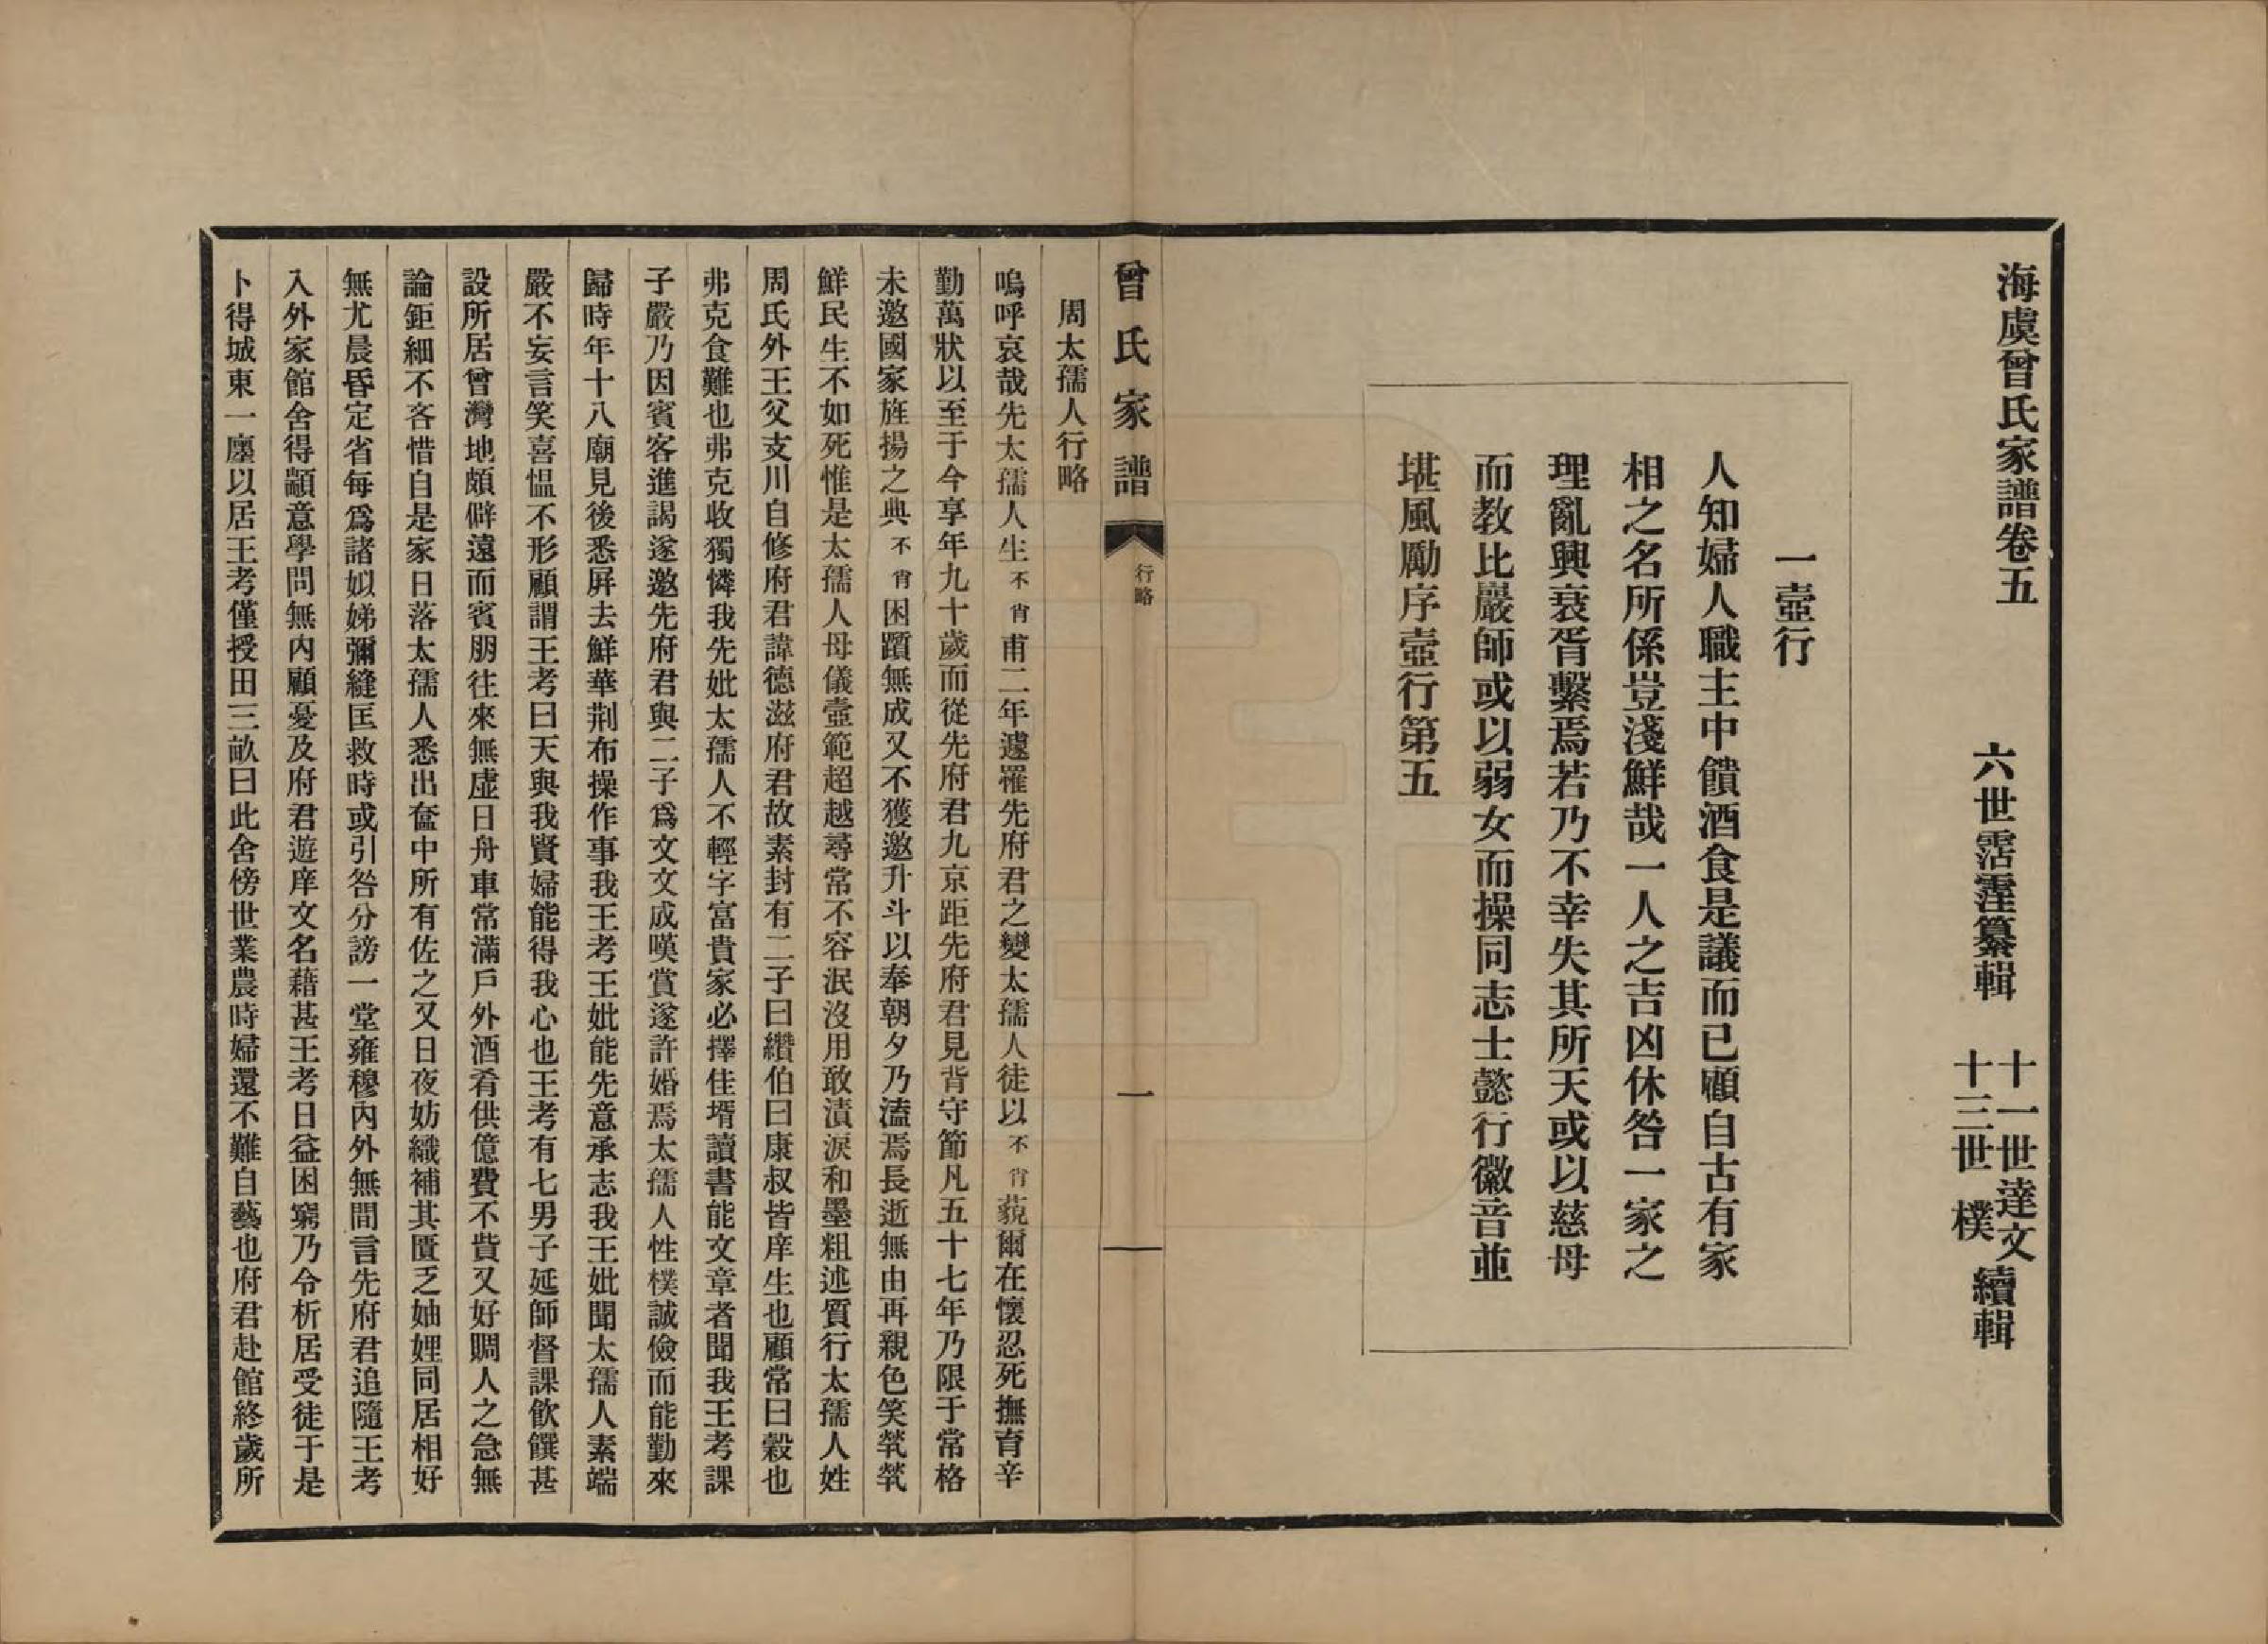 海虞曾氏家譜卷五
六世霑霪纂輯
十一世達文
十三世 樸
續輯
一壼行
人知婦人職主中饋酒食是議而已顧自古有家
相之名所係豈淺鮮哉一人之吉凶休咎一家之
理亂興衰胥繫焉若乃不幸失其所天或以慈母
而教比嚴師或以弱女而操同志士懿行徽音並
堪風勵序壼行第五
曾氏家譜
行略
一
周太孺人行略
嗚呼哀哉先太孺人生不肖甫二年遽罹先府君之變太孺人徒以不肖藐爾在懷忍死撫育辛
勤萬狀以至于今享年九十歲而從先府君九京距先府君見背守節凡五十七年乃限于常格
未邀國家旌揚之典不肖困躓無成又不獲邀升斗以奉朝夕乃溘焉長逝無由再親色笑煢煢
鮮民生不如死惟是太孺人母儀壼範超越尋常不容泯沒用敢漬淚和墨粗述質行太孺人姓
周氏外王父支川自修府君諱德滋府君故素封有二子曰纘伯曰康叔皆庠生也顧常曰穀也
弗克食難也弗克收獨憐我先妣太孺人不輕字富貴家必擇佳壻讀書能文章者聞我王考課
子嚴乃因賓客進謁遂邀先府君與二子爲文文成嘆賞遂許婚焉太孺人性樸誠儉而能勤來
歸時年十八廟見後悉屏去鮮華荆布操作事我王考王妣能先意承志我王妣聞太孺人素端
嚴不妄言笑喜慍不形顧謂王考曰天與我賢婦能得我心也王考有七男子延師督課飲饌甚
設所居曾灣地頗僻遠而賓朋往來無虛日舟車常滿戶外酒肴供億費不貲又好賙人之急無
論鉅細不吝惜自是家日落太孺人悉出奩中所有佐之又日夜妨織補其匱乏妯娌同居相好
無尤晨昏定省每爲諸姒娣彌縫匡救時或引咎分謗一堂雍穆內外無間言先府君追隨王考
入外家館舍得顓意學問無內顧憂及府君遊庠文名藉甚王考日益困窮乃令析居受徒于是
卜得城東一廛以居王考僅授田三畝曰此舍傍世業農時婦還不難自藝也府君赴館終歲所